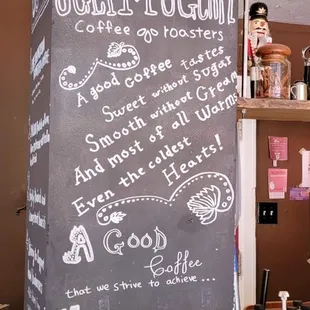 Coffee roasters
A good coffee tastes
Sweet without Sugar
Smooth without Cream
And most of all Warms
Even the coldest
Hearts!
A GOOD
Coffee
that we strive to achieve ...